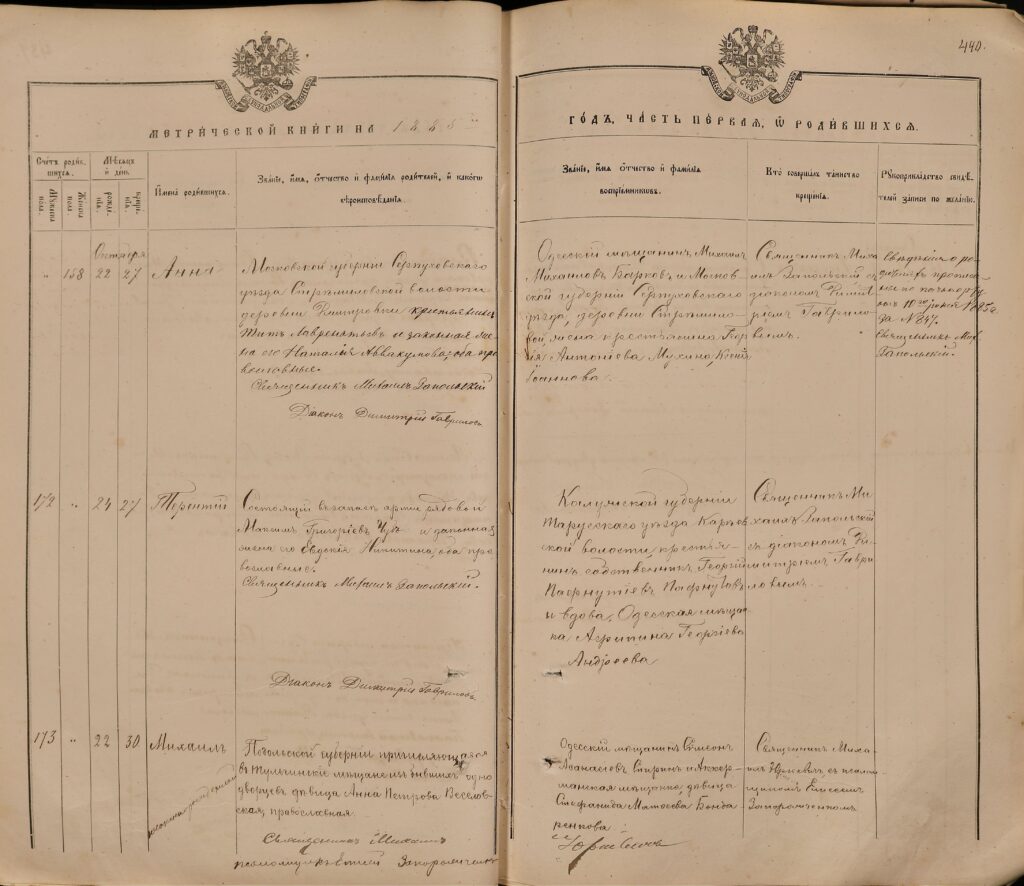 440.
МЕТРИЧЕСКОЙ КНИГИ НА 1885
ГОДЪ, ЧАСТЬ ПЕРВАЯ, Ѡ РОДИВШИХСЯ.
Счетъ родив
шихся.
Мужеска
пола.
Женска
пола.
Мѣсяцъ
и день
рожде-
нія.
креще-
нія.
Имена родившихся.
Званіе, имя, отчество и фамилія родителей, и какого
вѣроисповѣданія.
Званіе, имя, отчество и фамилія
воспріемниковъ.
Кто совершалъ таинство
крещенія.
Рукоприкладство свидѣ-
телей записи по желанію.
Октября
„ 158 22 27
Анна
Московской губерніи Серпуховского
уѣзда Стремиловской волости
деревни крестьянинъ
Титъ Лаврентьевъ и законная же-
на его Наталія Аввакумова, оба пра
вославные.
Священникъ Михаилъ Запольскій
Діаконъ Димитрій Гавриловъ
Одесскій мѣщанинъ Михаилъ
Михайловъ Барковъ и Москов-
ской губерніи Серпуховского
уѣзда, деревни Стремило-
вой, жена крестьянина
Антоніева Мухина, Ксенія
Іоаннова.
Священникъ Миха-
илъ Запольскій съ
діакономъ Димит
ріемъ Гаврило-
вымъ.
Свѣдѣнія о ро-
дителяхъ прописа-
ны по паспорту
отъ 10го 1885
да № 847.
Священникъ Мих.
Запольскій.
172 „ 24 27
Терентій
Состоящій въ запасѣ арміи рядовой
Максимъ Григоріевъ и законная
жена его Евдокія Никитина, оба пра
вославные.
Священникъ Михаилъ Запольскій.
Діаконъ Димитрій Гавриловъ
Калужской губерніи
Тарусскаго уѣзда
ской волости, крестья-
нинъ собственникъ Георгій
Пафнутіевъ Пафнутовъ
и вдова, Одесская мѣщан
ка Агрипина Георгіева
Андреева
Священникъ Ми
хаилъ Запольскій
съ діакономъ Ди-
митріемъ Гаври
ловымъ.
173 „ 22 30
Михаилъ
Подольской губерніи причисляющаяся
въ Тульчинскіе мѣщане изъ бывшихъ одно
дворцевъ, дѣвица Анна Петрова Веселов-
ская, православная.
Священникъ Михаилъ
псаломщикъ
Одесскій мѣщанинъ Симеонъ
Аѳанасіевъ Спиринъ и Аккер-
манская мѣщанка, дѣвица
Стефанида Матѳеева Бонда
ренкова.
Священникъ Миха-
илъ съ псалом
щикомъ Евсевіемъ
Запорожченкомъ